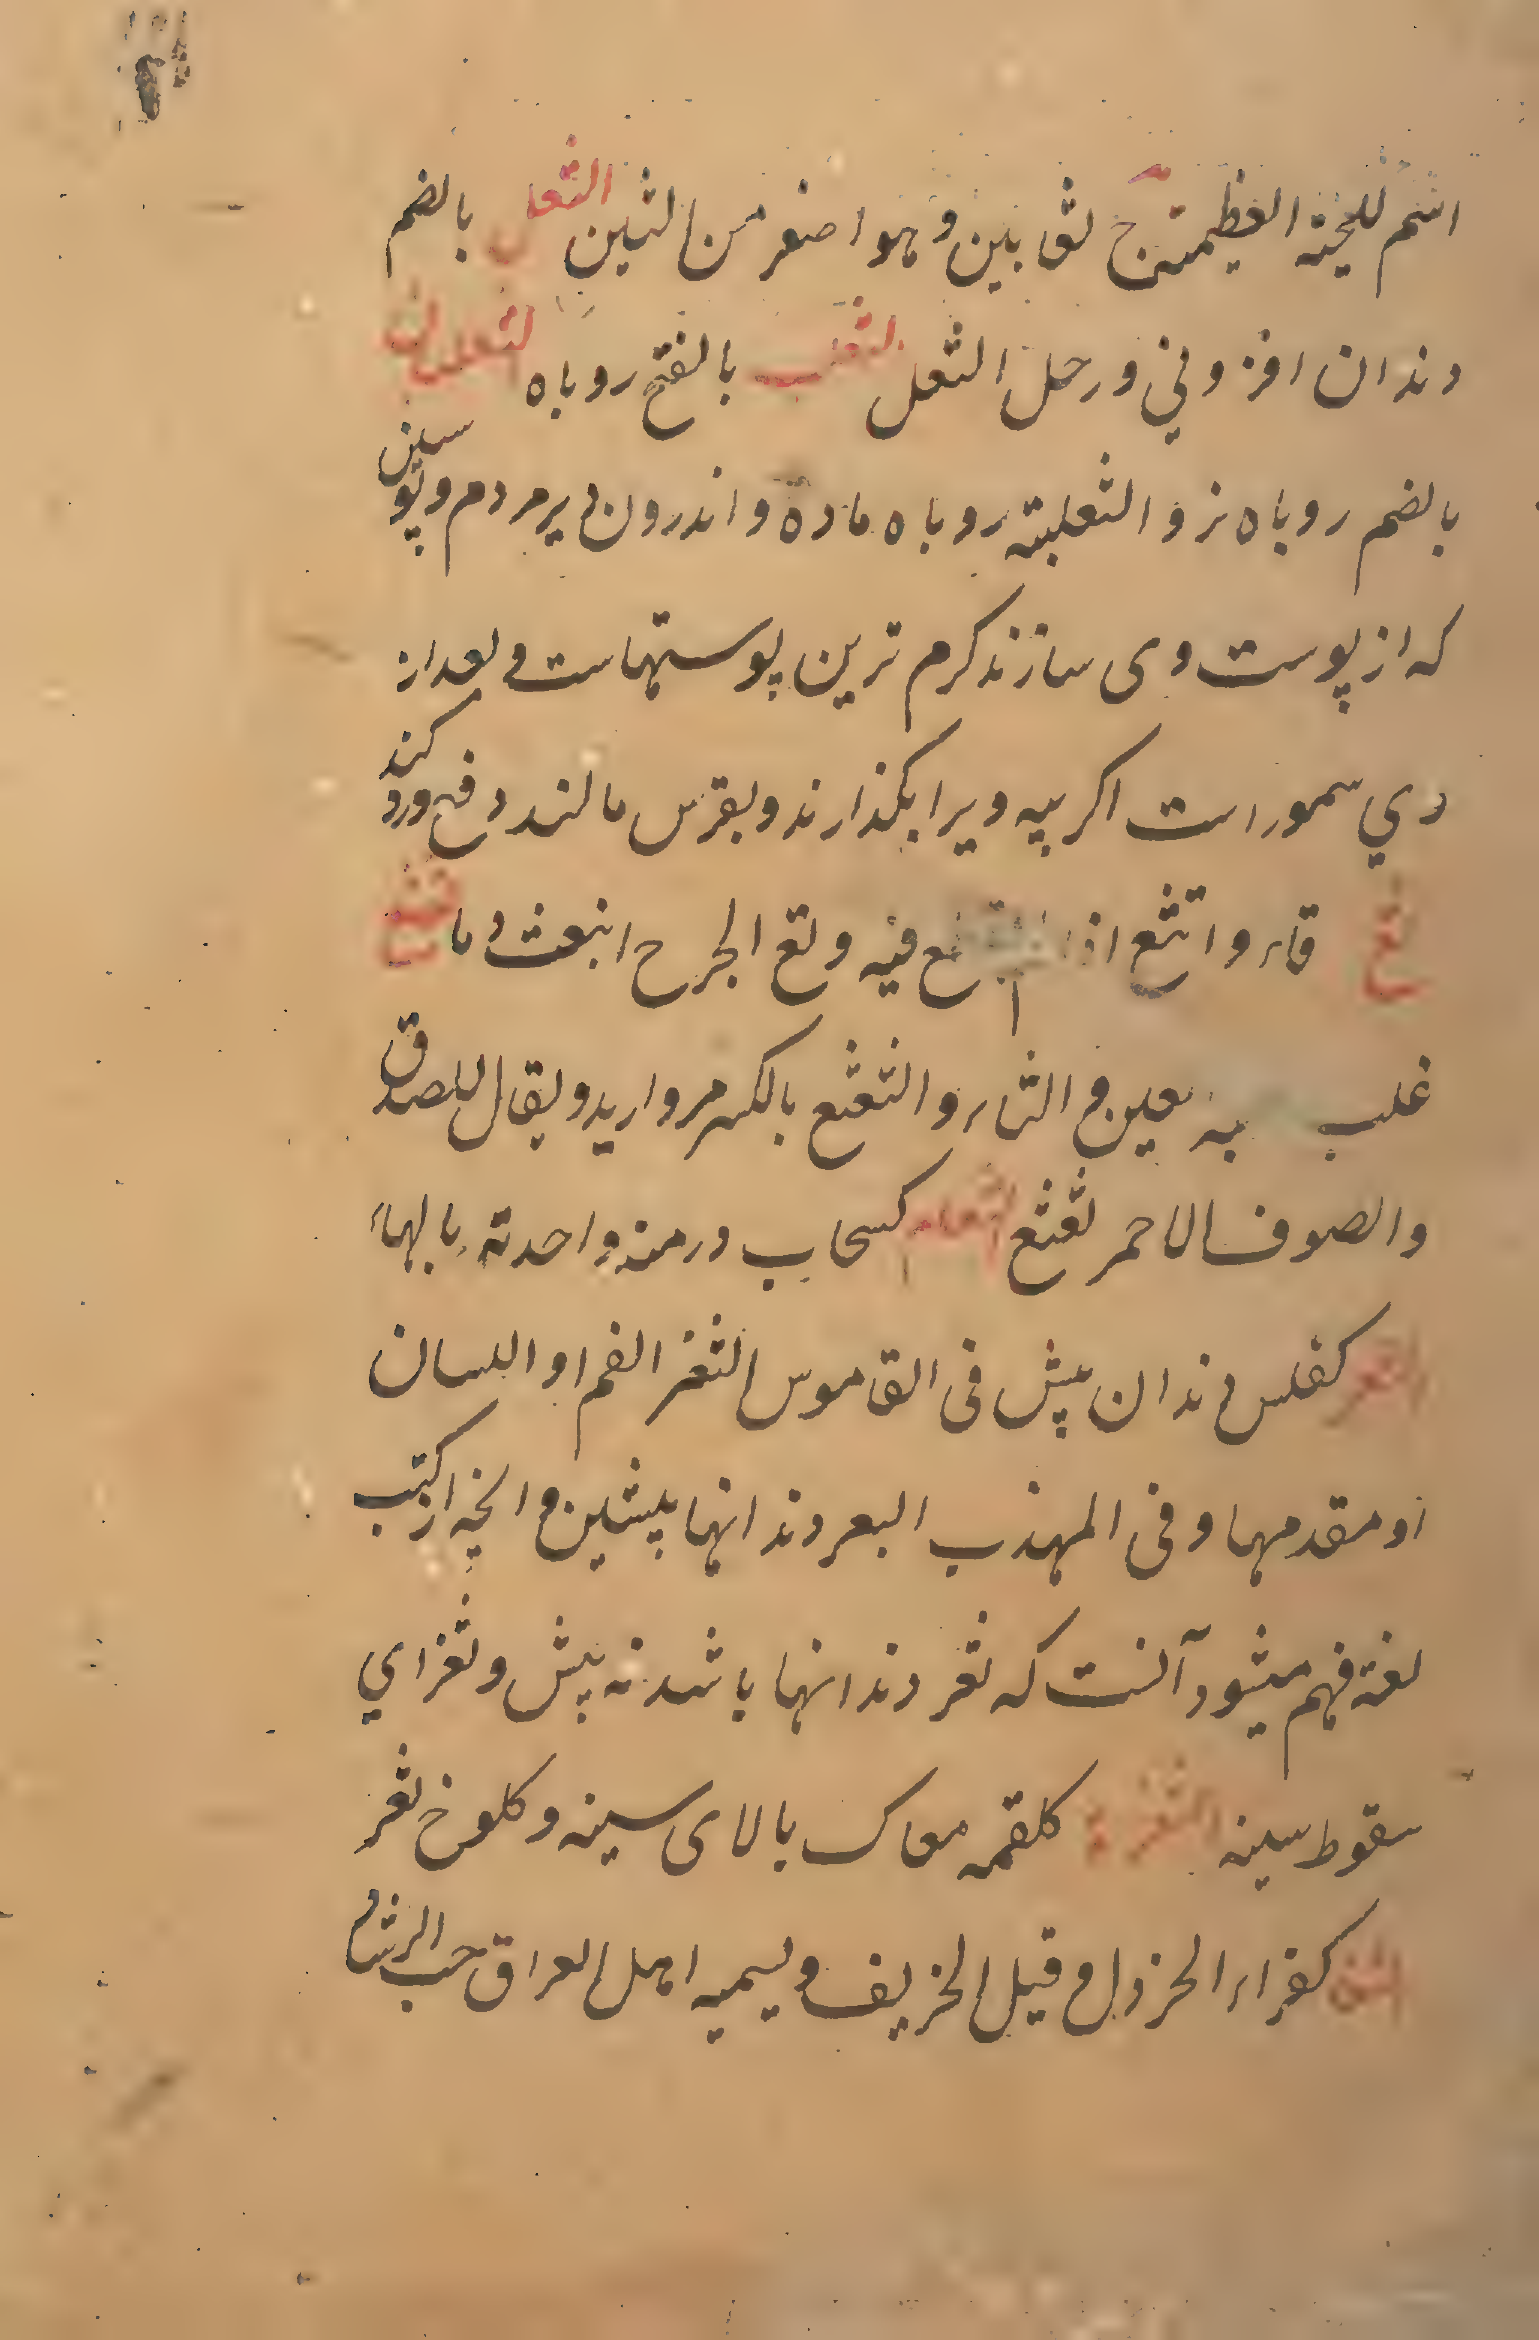 اسم للحية العظيمة ج ثعابين و هو اصغر من التنين الثعل بالضم
دندان افزوني و رجل اثعل الثعلب بالفتح روباه الثعلبان
بالضم روباه نر و الثعلبة روباه ماده و اندرون دبر مردم و پوستين
كه از پوست وى سازند كرم ترين پوستهاست و بعد از
وي سمور است اكر پيه ويرا بكذارند و بنقرس مالند دفع ورد كند
ثع قاء و انثع اذا فيه و ثع الجرح انبعث دما
غلب بعين و الثاء و الثعثع بالكسر مرواريد و يقال للصدف
والصوف الاحمر ثعثع الثغام كسحاب درمنه واحدته بالهاء
الثغر كفلس دندان پيش فى القاموس الثغر الفم او اللسان
او مقدمها و فى المهذب الثغر دندانها پيشين و انچه از كتب
لغة فهم ميشود آنست كه ثغر دندانها باشد نه پيش و ثغر اي
سقوط سينه الثغرة كلقمه مغاك بالاى سينه و كلو ج ثغر
كقراء الخردل و قيل الحريف و يسميه اهل العراق حب الرشاد